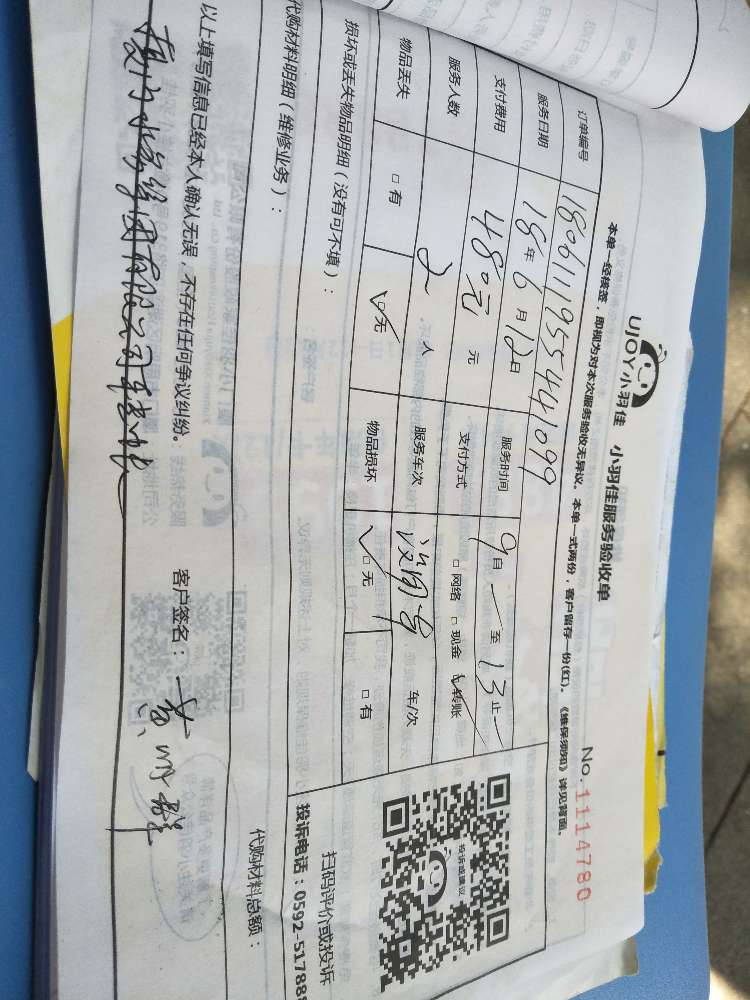 UJOY小羽佳 小羽佳服务验收单
No.11114780
本单一经核签，即视为对本次服务验收无异议。本单一式两份，客户留存一份(红)。《维保须知》详见背面。
订单编号 1806111955441099
服务日期 18年6月12日 服务时间 9自 至 13止
支付费用 480元 元 支付方式 □网络 □现金 □转账
服务人数 2 人 服务车次 车/次
物品丢失 □有 □无 物品损坏 □无 □有
投诉或建议
扫码评价或投诉
投诉电话：0592-517888
损坏或丢失物品明细（没有可不填）：
代购材料明细（维修业务）：
代购材料总额：
以上填写信息已经本人确认无误，不存在任何争议纠纷。
客户签名：